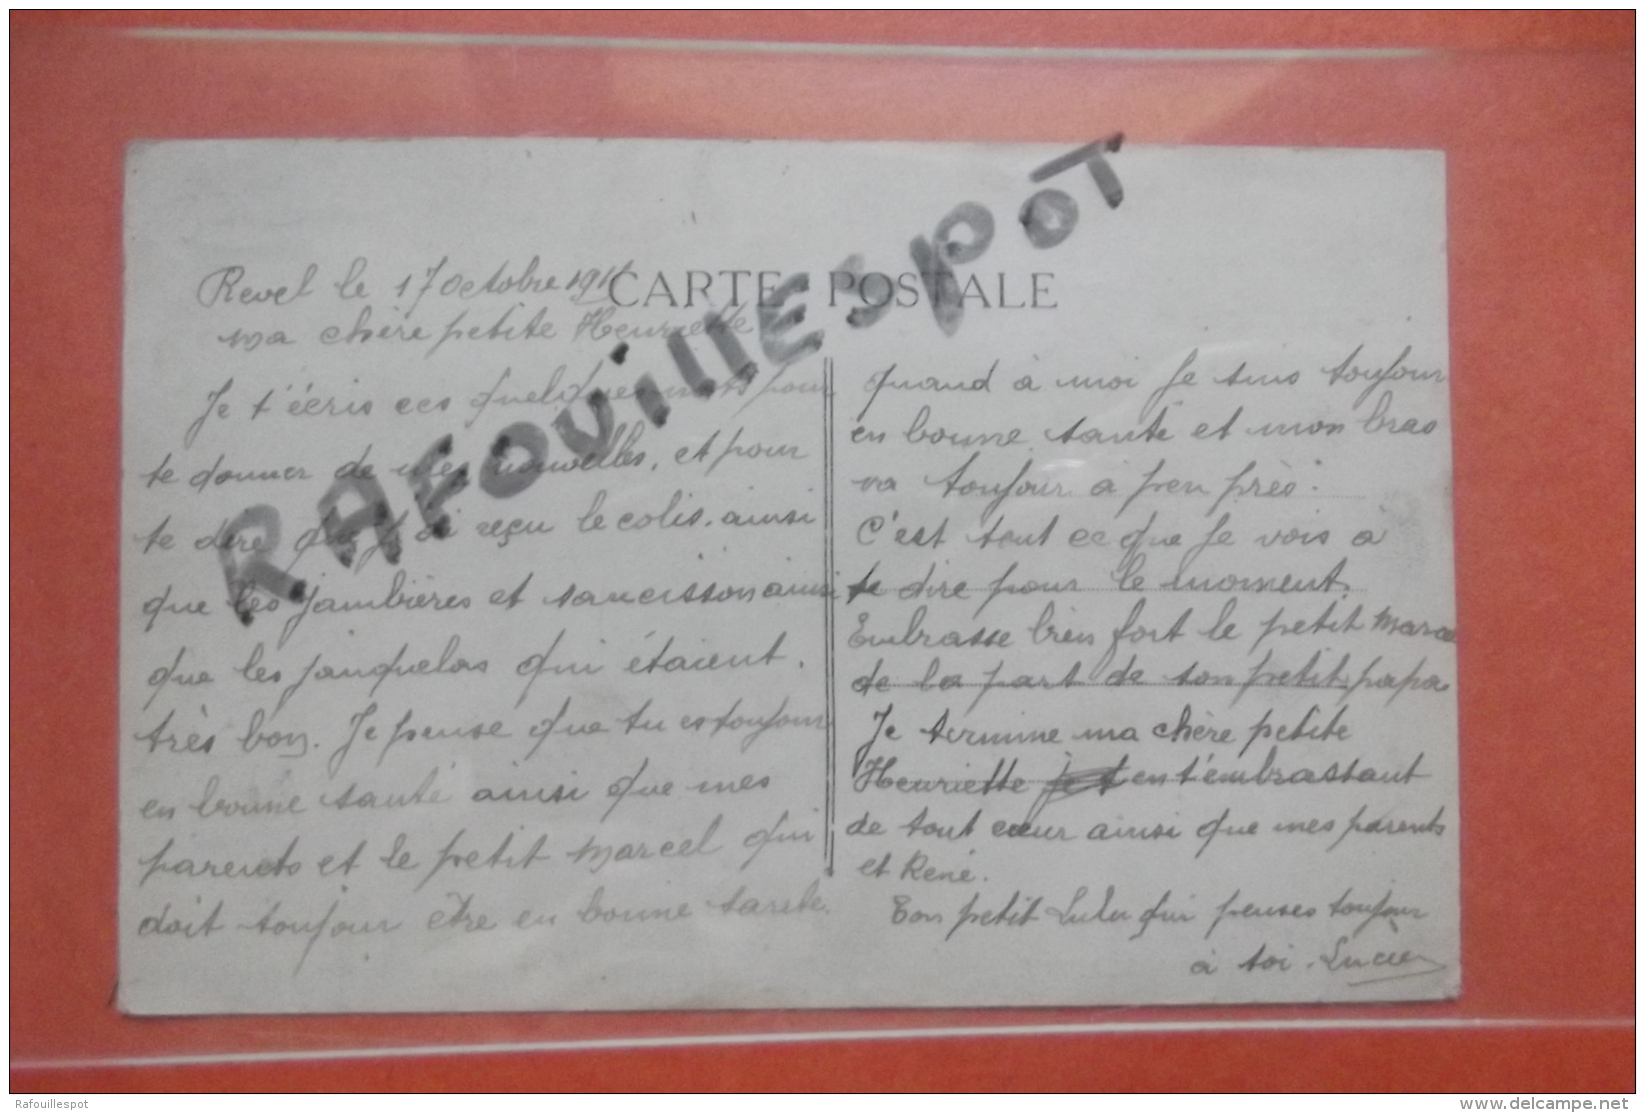 RAFOUILLESPOT
CARTE POSTALE
Revel le 17 octobre
ma chère petite Henriette
Je t'écris ces quelques mots pour
te donner de mes nouvelles, et pour
te dire que j'ai reçu le colis. ainsi
que les jambières et saucisson ainsi
que les qui étaient.
très bon. Je pense que tu es toujour
en bonne santé ainsi que mes
parents et le petit Marcel qui
doit toujour être en bonne sante.
quand à moi Je suis toujour
en bonne santé et mon bras
va toujour à peu près.
C'est tout ce que Je vois à
te dire pour le moment.
Embrasse bien fort le petit Marcel
de la part de son petit papa
Je termine ma chère petite
Henriette en t'embrassant
de tout cœur ainsi que mes parents
et René.
Ton petit Lulu qui penses toujour
à toi. Lucien
Rafouillespot
delcampe.net